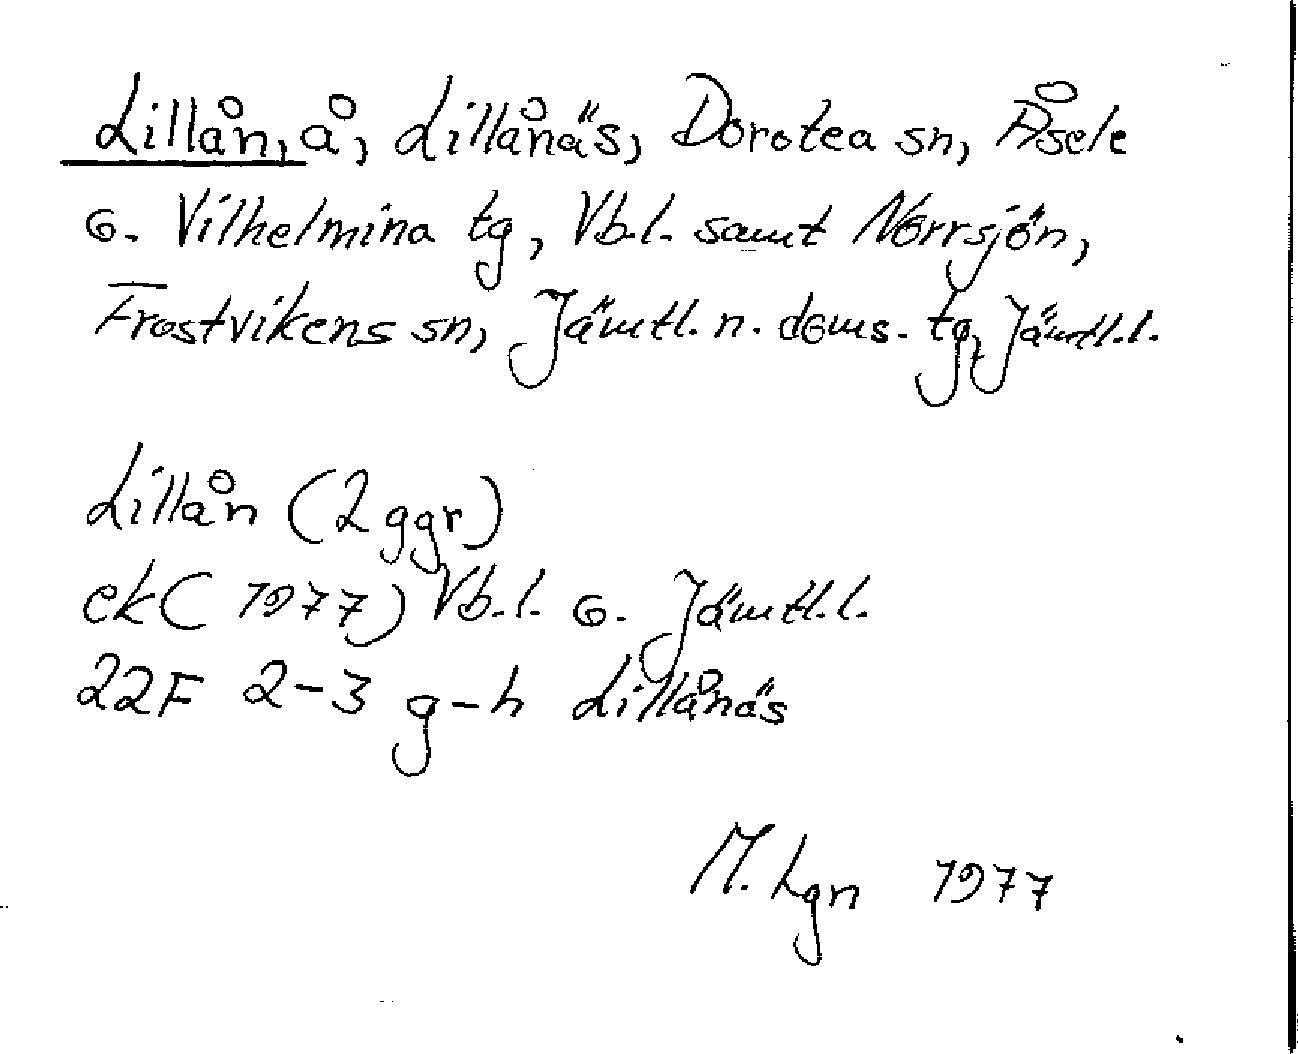 Lillån, å, Lillånäs, Dorotea sn, Åsele
o. Vilhelmina tg, Vb.l. samt Norrsjön,
Frostvikens sn, Jämtl. n. doms. tg, Jämtl.l.
Lillån (2 ggr)
ek (1977) Vb.l. o. Jämtl.l.
22F 2-3 g-h Lillånäs
M. Lgn 1977